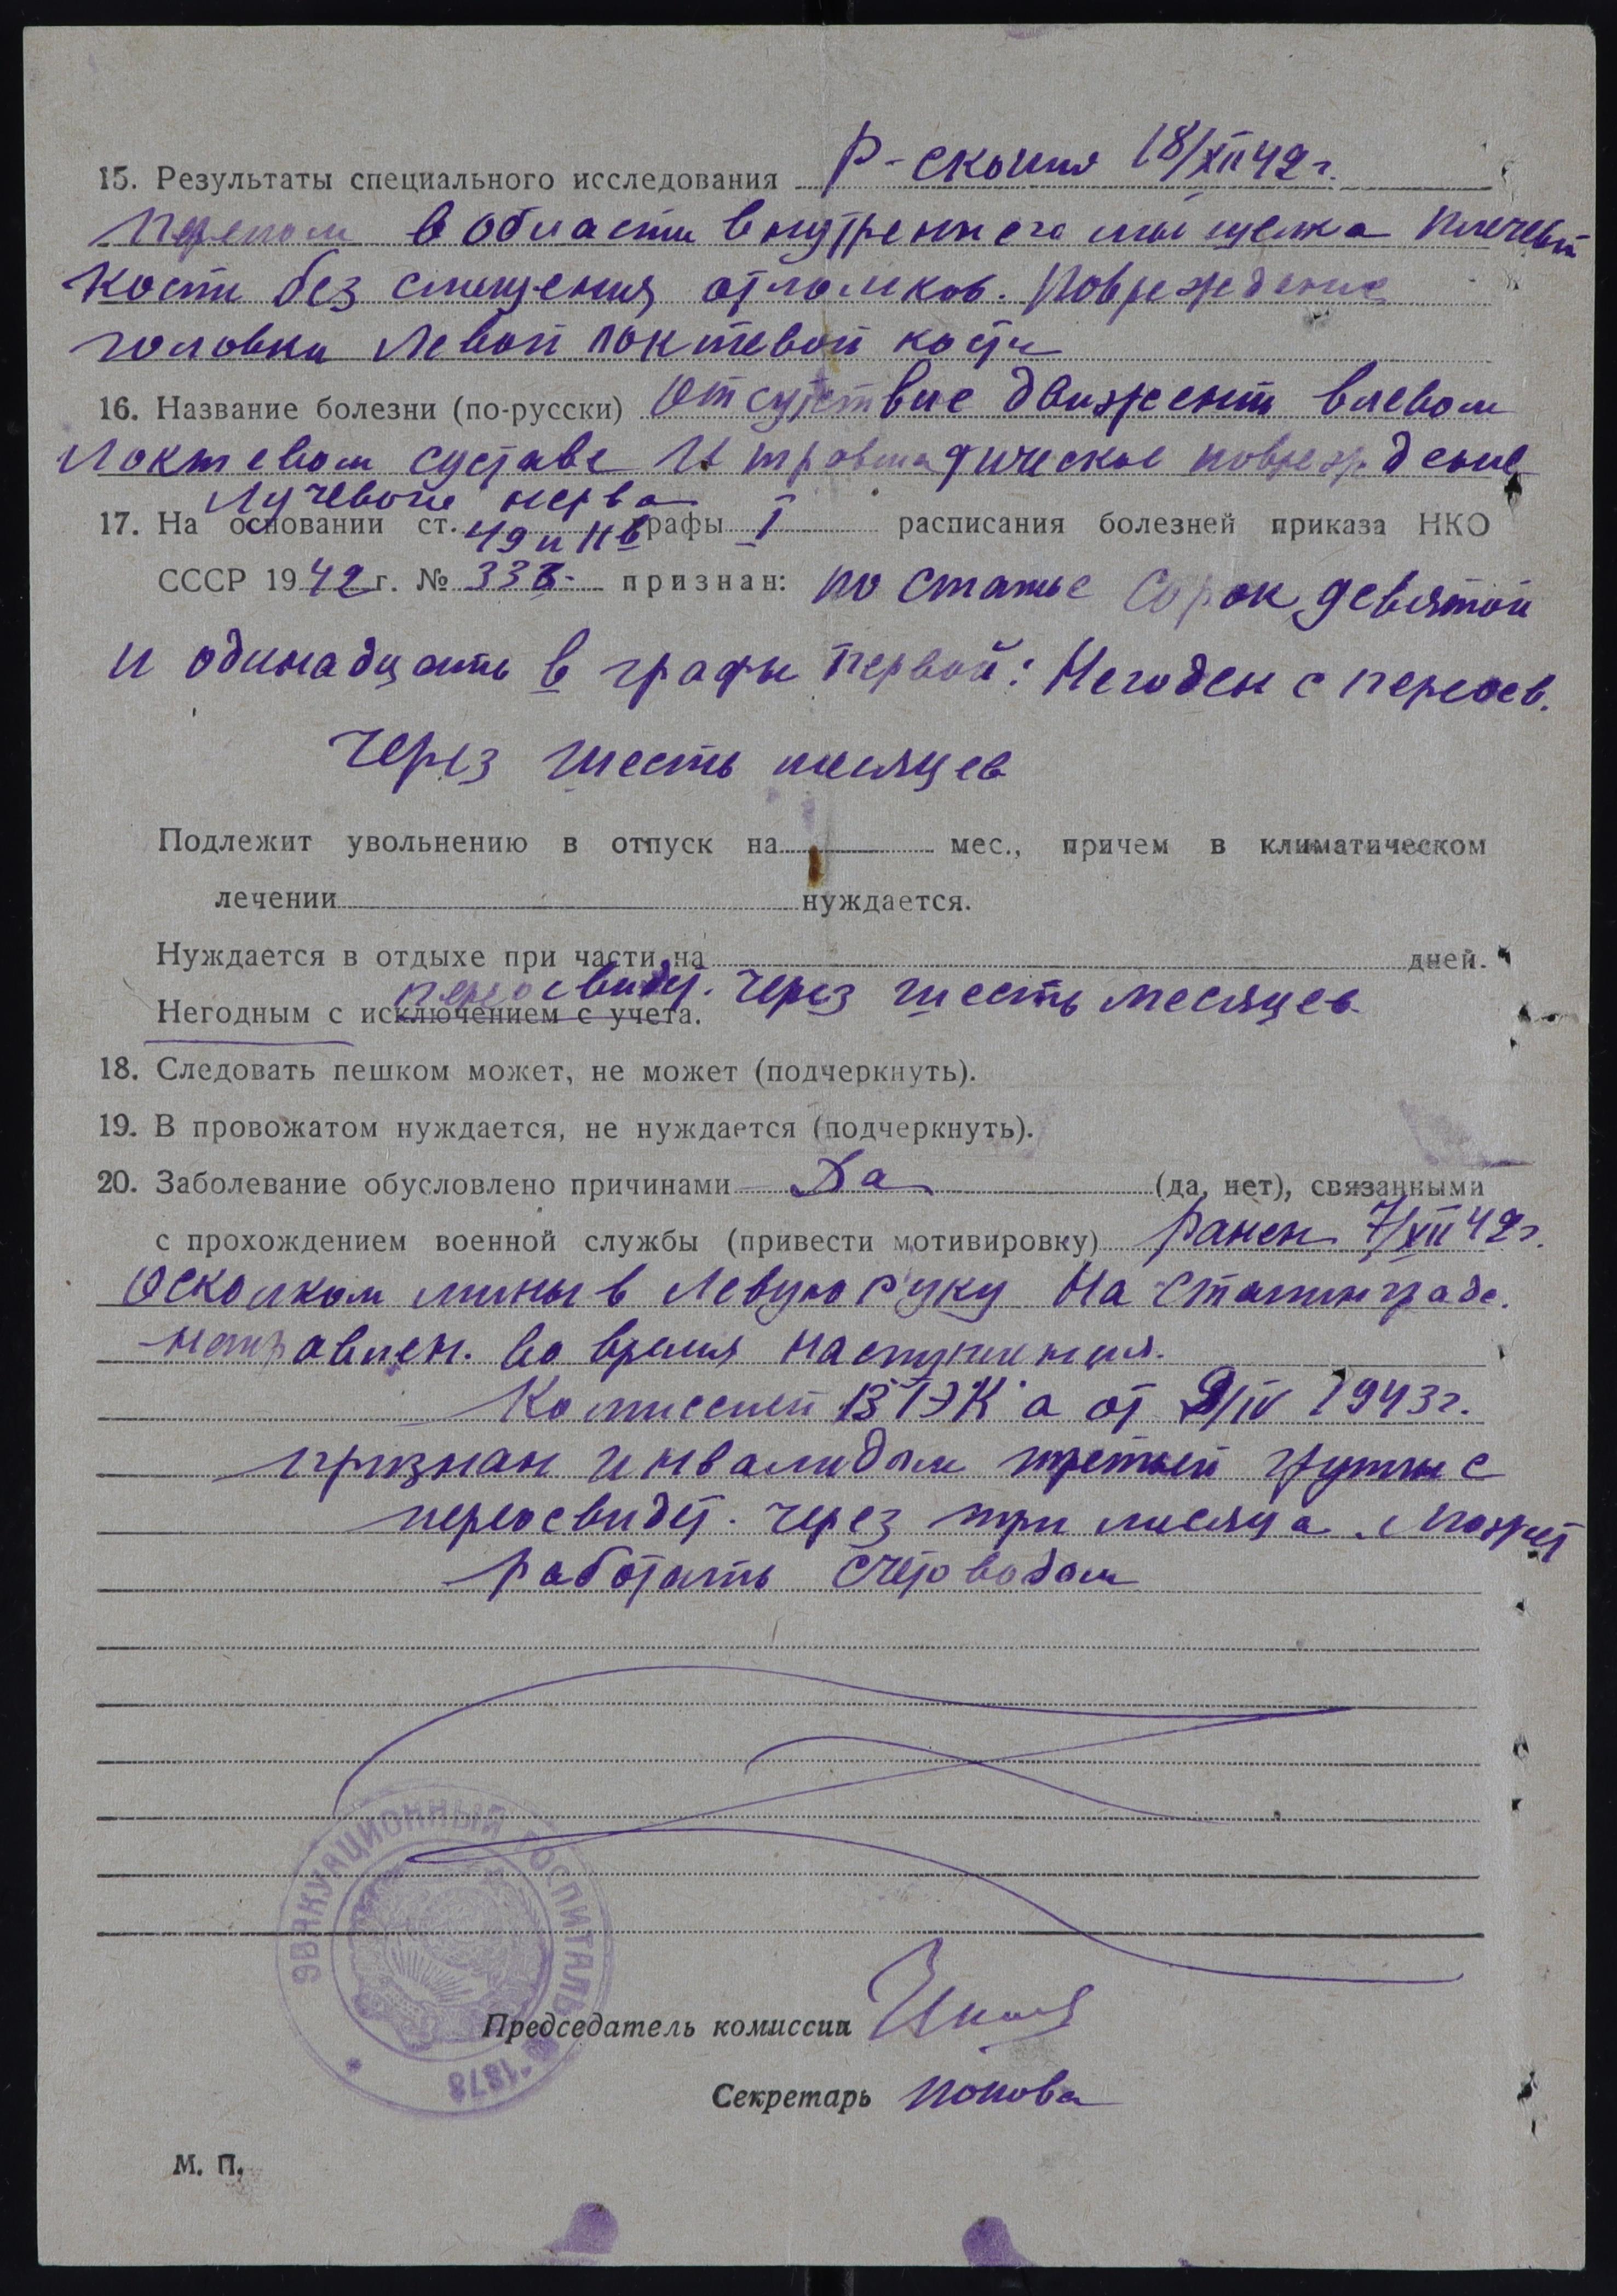 15. Результаты специального исследования Р-скопия 18/XII 42 г.
Перелом в области внутреннего мыщелка плечевой
кости без смещения отломков. Повреждение
головки левой локтевой кости
16. Название болезни (по-русски) Отсутствие движений в левом
локтевом суставе и травматическое повреждение
лучевого нерва
17. На основании ст. 49 и 11в графы I расписания болезней приказа НКО
СССР 1942 г. № 336 признан: по статье сорок девятой
и одинадцать в графы первой: Негоден с переосв.
через шесть месяцев
Подлежит увольнению в отпуск на мес., причем в климатическом
лечении нуждается.
Нуждается в отдыхе при части на дней.
переосвидет. через шесть месяцев
Негодным с исключением с учета.
18. Следовать пешком может, не может (подчеркнуть).
19. В провожатом нуждается, не нуждается (подчеркнуть).
20. Заболевание обусловлено причинами Да (да, нет), связанными
с прохождением военной службы (привести мотивировку) Ранен 7/XII 42 г.
осколком мины в левую руку на Сталинград.
направлен. во время наступления.
Комиссией ВТЭК'а от 9/IV 1943 г.
признан инвалидом третьей группы с
переосвидет. через три месяца. Может
работать счетоводом
ЭВАКУАЦИОННЫЙ ГОСПИТАЛЬ № 1878
Председатель комиссии
Секретарь Попова
М. П.